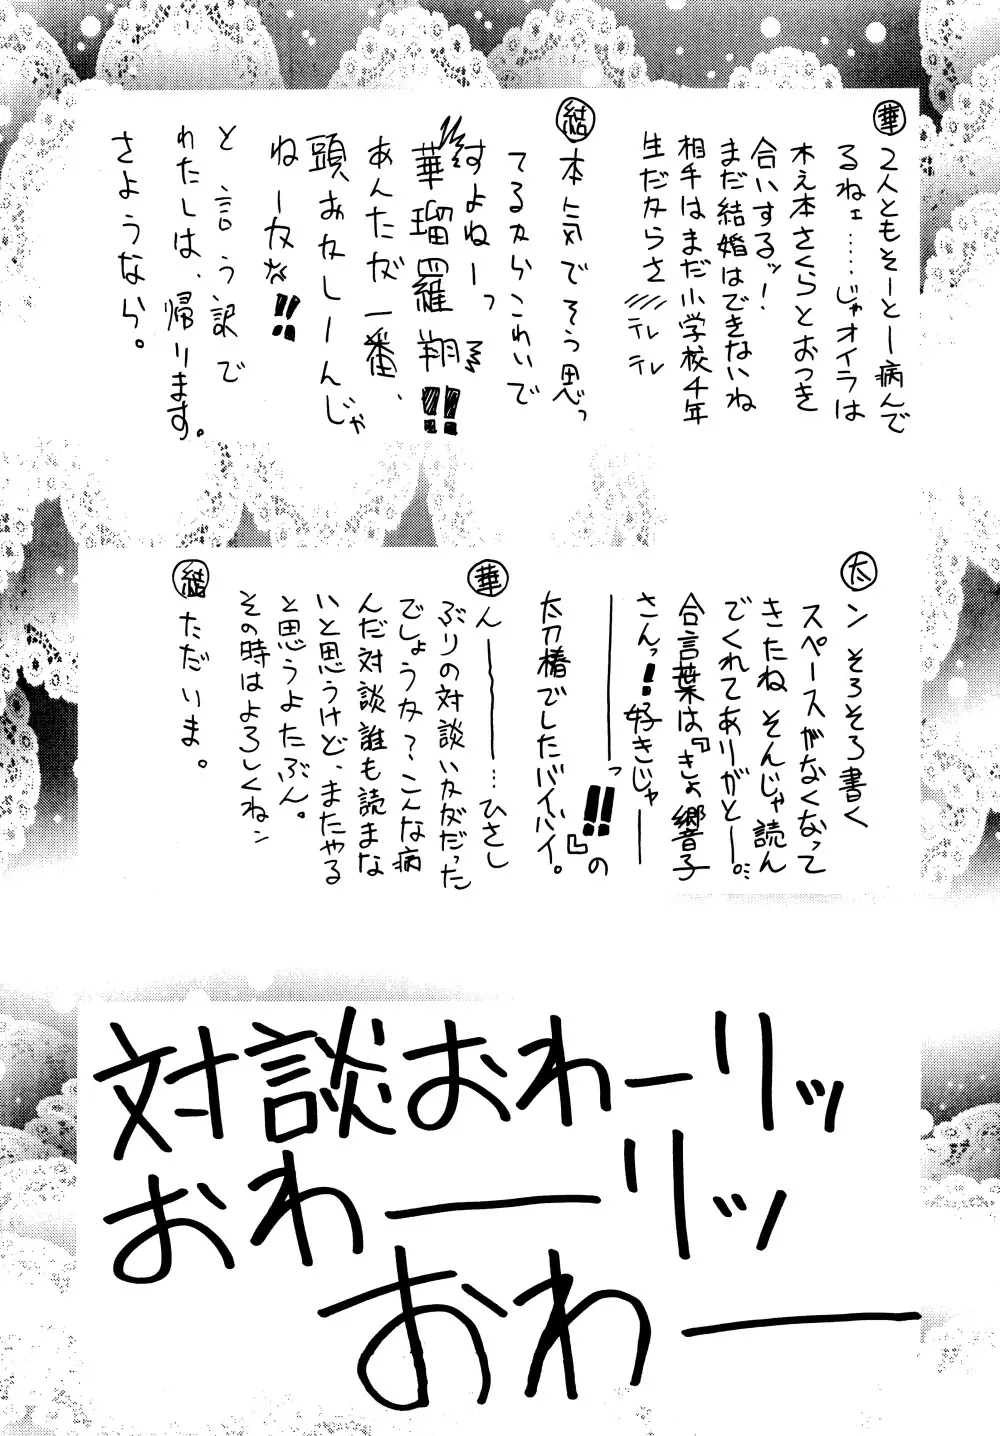 華 2人ともそーとー病んで
るねェ……じゃオイラは
木之本さくらとおつき
合いするッ!
まだ結婚はできないね
相手はまだ小学校4年
生だからさ テレテレ
結 本気でそう思っ
てるからこわいで
すよねーっ
華瑠羅翔!!
あんたが一番、
頭おかしーんじゃ
ねーか!!
と言う訳で
わたしは、帰ります。
さようなら。
太 ン そろそろ書く
スペースがなくなって
きたね そんじゃ読ん
でくれてありがとー。
合言葉は『きょ響子
さんっ!!好きじゃー
ーっ!!』の
太刀椿でしたバイバイ。
華 ん〜……ひさし
ぶりの対談いかがだった
でしょうか?こんな病
んだ対談誰も読まな
いと思うけど、またやる
と思うよたぶん。
その時はよろしくねン
結 ただいま。
対談おわーリッ
おわーリッ
おわー